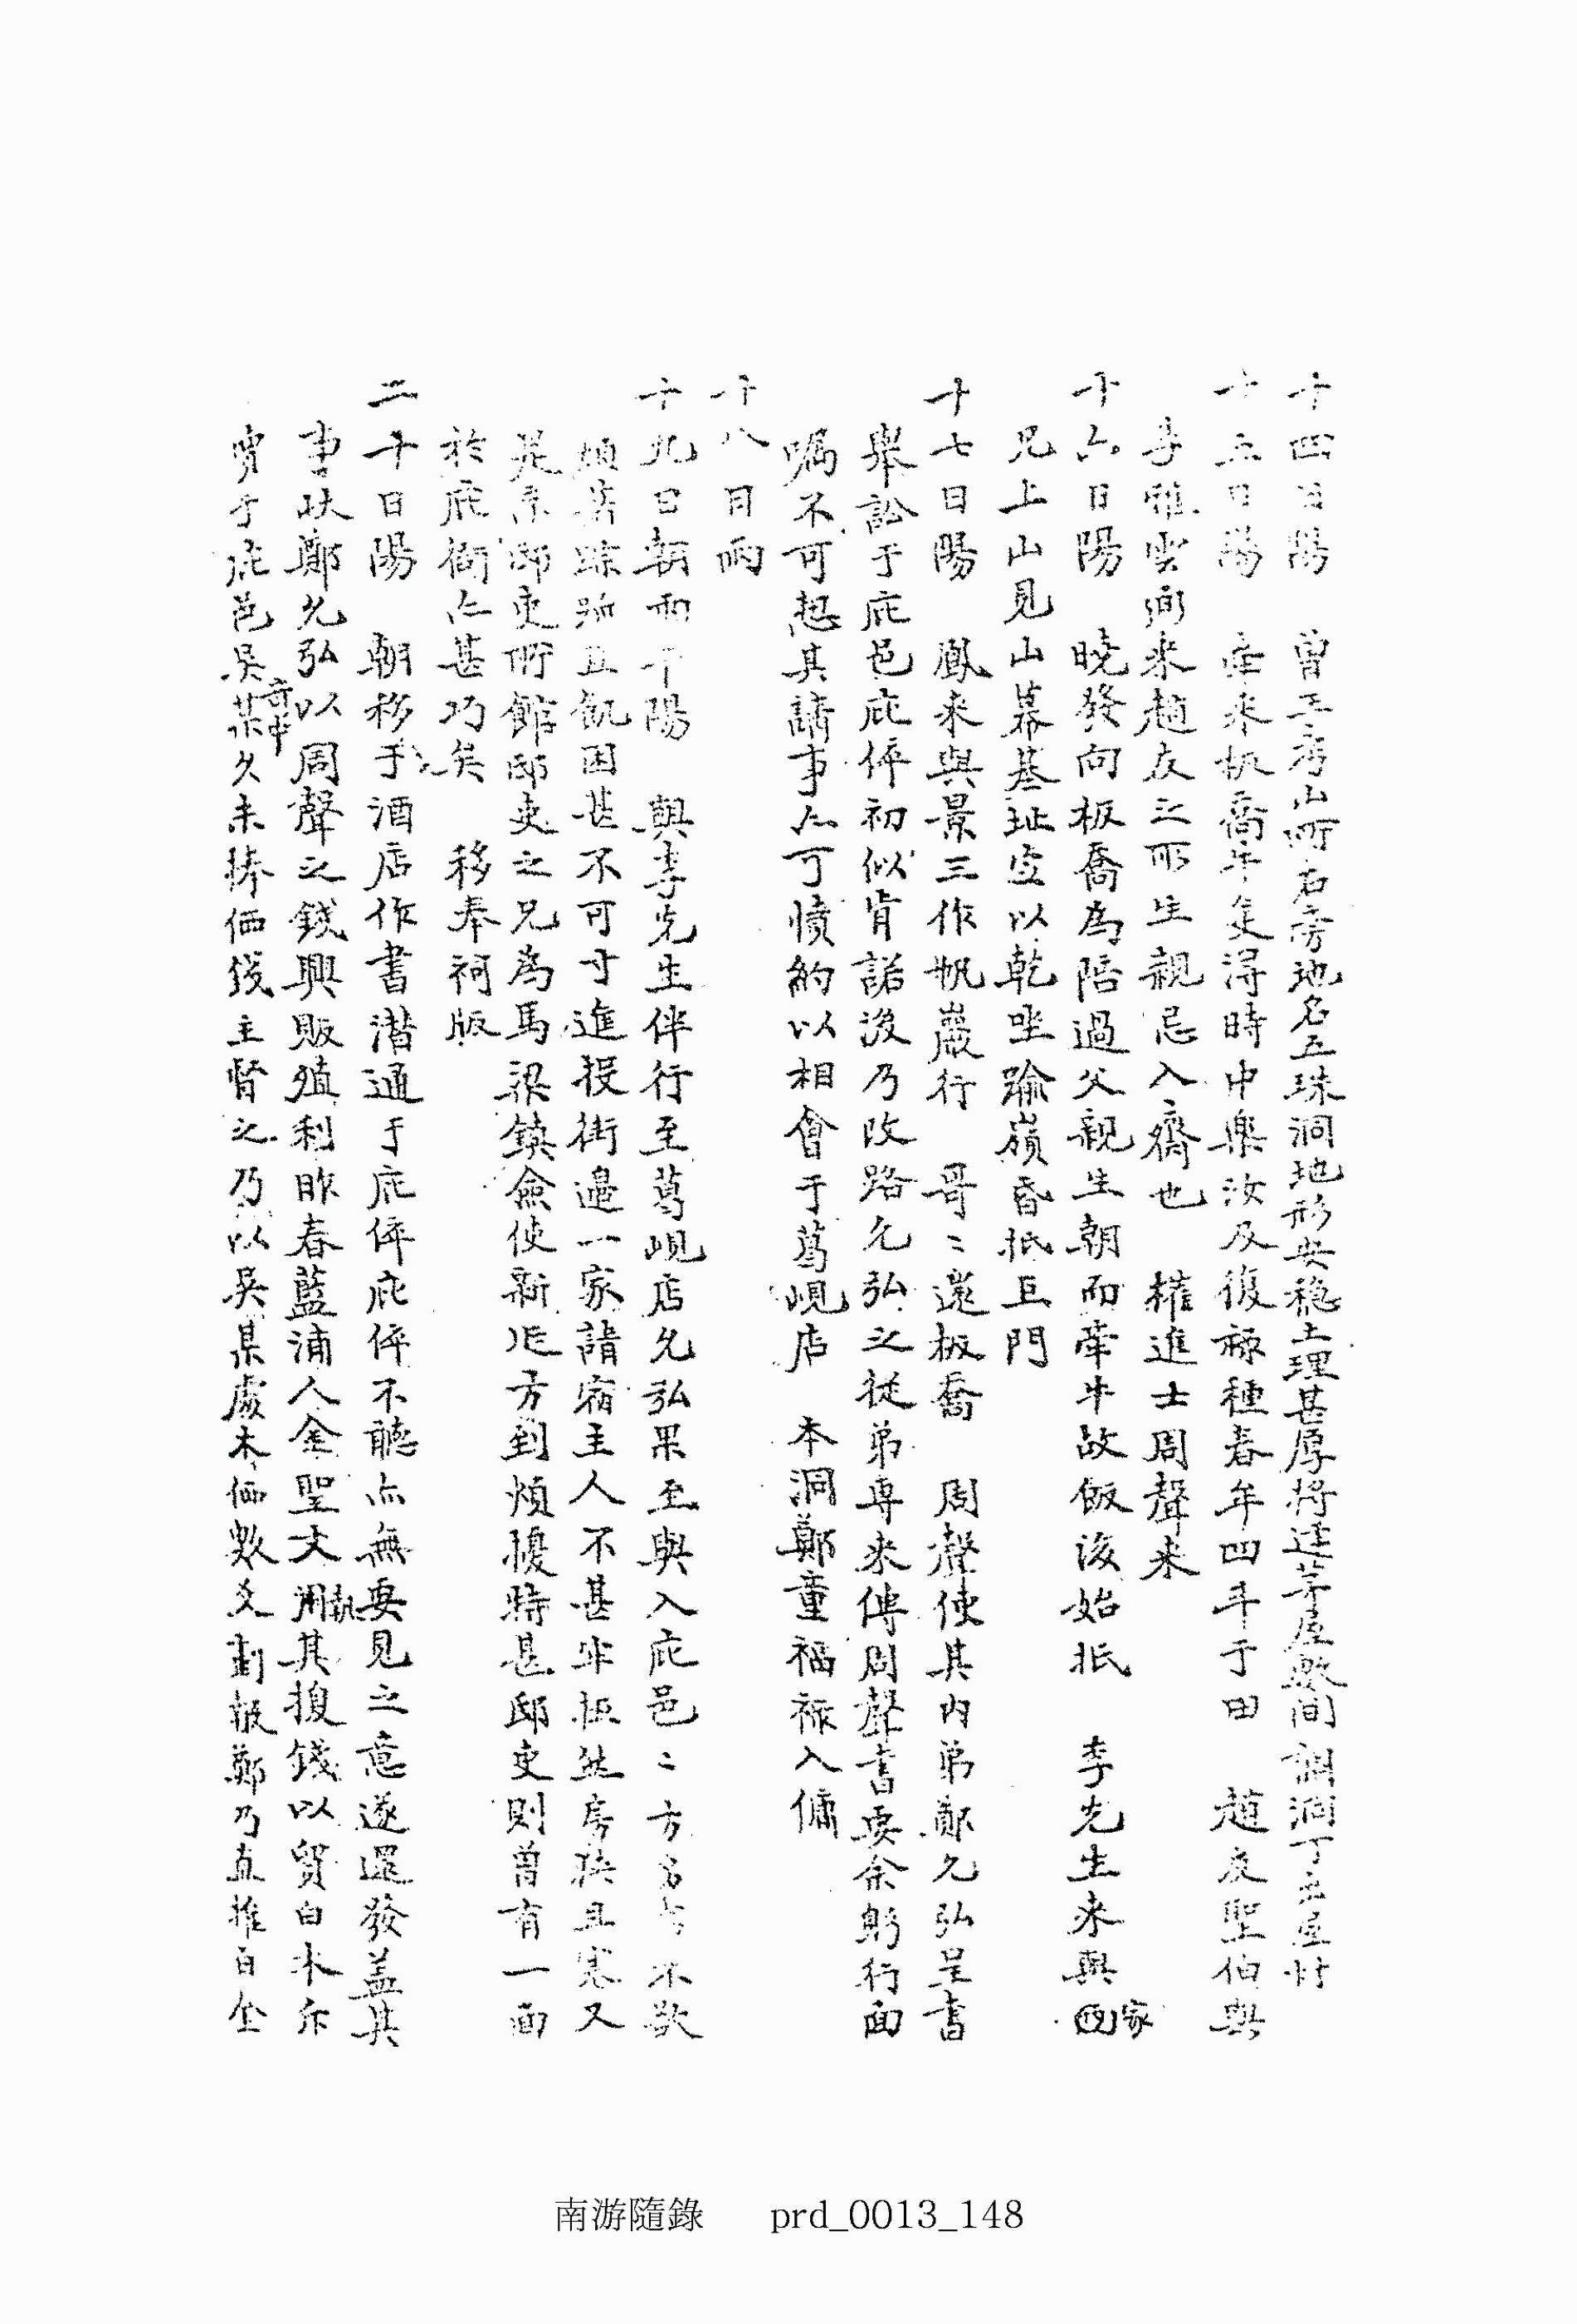 十四日陽 曾王考山所右旁地名五珠洞地形安穩土理甚厚將建茅屋數間 調洞丁立屋材
十五日陽 奎來板喬牛隻得時中樂汝及復祿種春牟四斗于田 趙友聖伯與
李雅雲弼來趙友之所生親忌入齋也 權進士周聲來
十六日陽 曉發向板喬爲陪過父親生朝而牽牛故飯後始抵 李先生來與家
兄上山見山幕基址定以乾坐踰嶺昏抵巨門
十七日陽 鳳來與景三作帆巖行 哥〻還板喬 周聲使其內弟鄭允弘呈書
擧訟于庇邑庇倅初似肯諾後乃改路允弘之從弟專來傳周聲書要余躬行面
囑不可恝其請事亦可憤約以相會于葛峴店 本洞鄭童福祿入傭
十八日雨
十九日朝雨午陽 與李先生伴行至葛峴店允弘果至與入庇邑〻方 不欲
煩 踪跡且飢困甚不可寸進投街邊一家請宿主人不甚牢拒然房狹且寒又
是京邸吏所館邸吏之兄爲馬梁鎮僉使新 方到煩擾特甚邸吏則曾有一面
於庇衙亦甚巧矣 移奉祠版
二十日陽 朝移于酒店作書潛通于庇倅庇倅不聽亦無要見之意遂還發盖其
事狀鄭允弘以周聲之錢興販殖利昨春藍浦人金聖文用其 錢以貿白木 
賣于庇邑吳某奇中久未捧価錢主督之乃以吳某處木価數爻劃報鄭乃直推自金